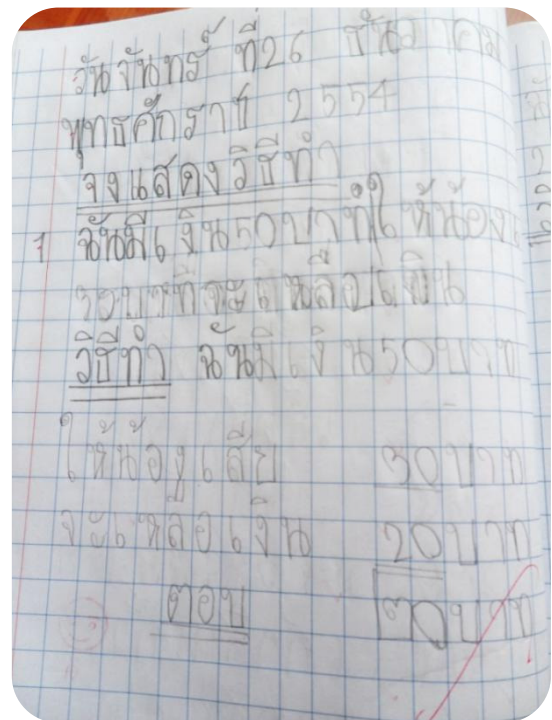 วันจันทร์ ที่26 ธันวาคม
พุทธศักราช 2554
จงแสดงวิธีทำ
1 ฉันมีเงิน50บาทให้น้อง
30บาทจะเหลือเงิน
วิธีทำ ฉันมีเงิน50บาท
ให้น้องเสีย 30บาท
จะเหลือเงิน 20บาท
ตอบ ๒๐บาท